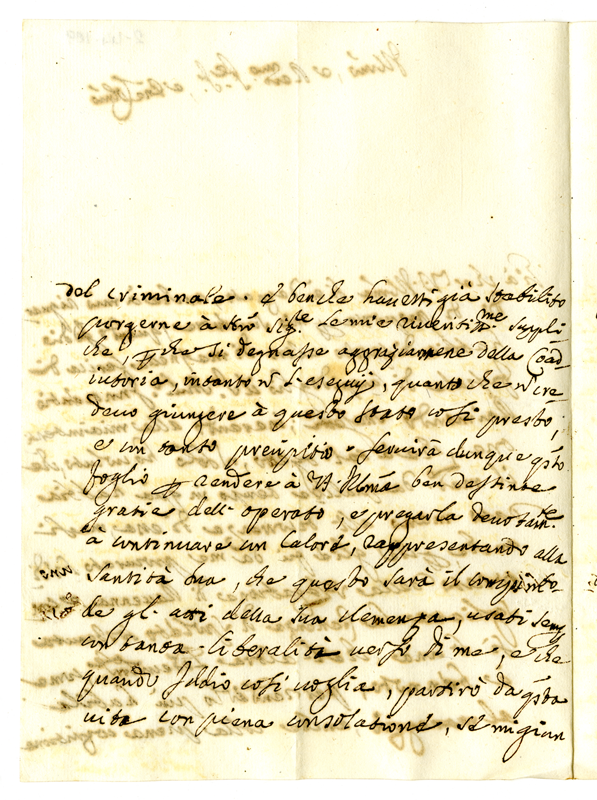 del criminale. E benche havessi già stabilito
porgerne à Nrõ Sigre. le mie riverentime. suppli
che, p che si degnasse aggraziarmene della Coad
iutoria, intanto ñ l'eseguij, quanto che ñ cre
devo giungere à questo stato così presto;
e un tanto precipitio. Servirà dunque qsto
foglio p rendere à VS. Illma ben destinte
gratie dell' operato, e pregarla devotamte.
à continuare con calore, rappresentando alla
Santità Sua, che questo sarà il
de gl' atti della sua clemenza, usati sempre
con tanta liberalità verso di me, e che
quando Iddio così voglia, partirò da qsta
vita con piena consolatione, se mi giun